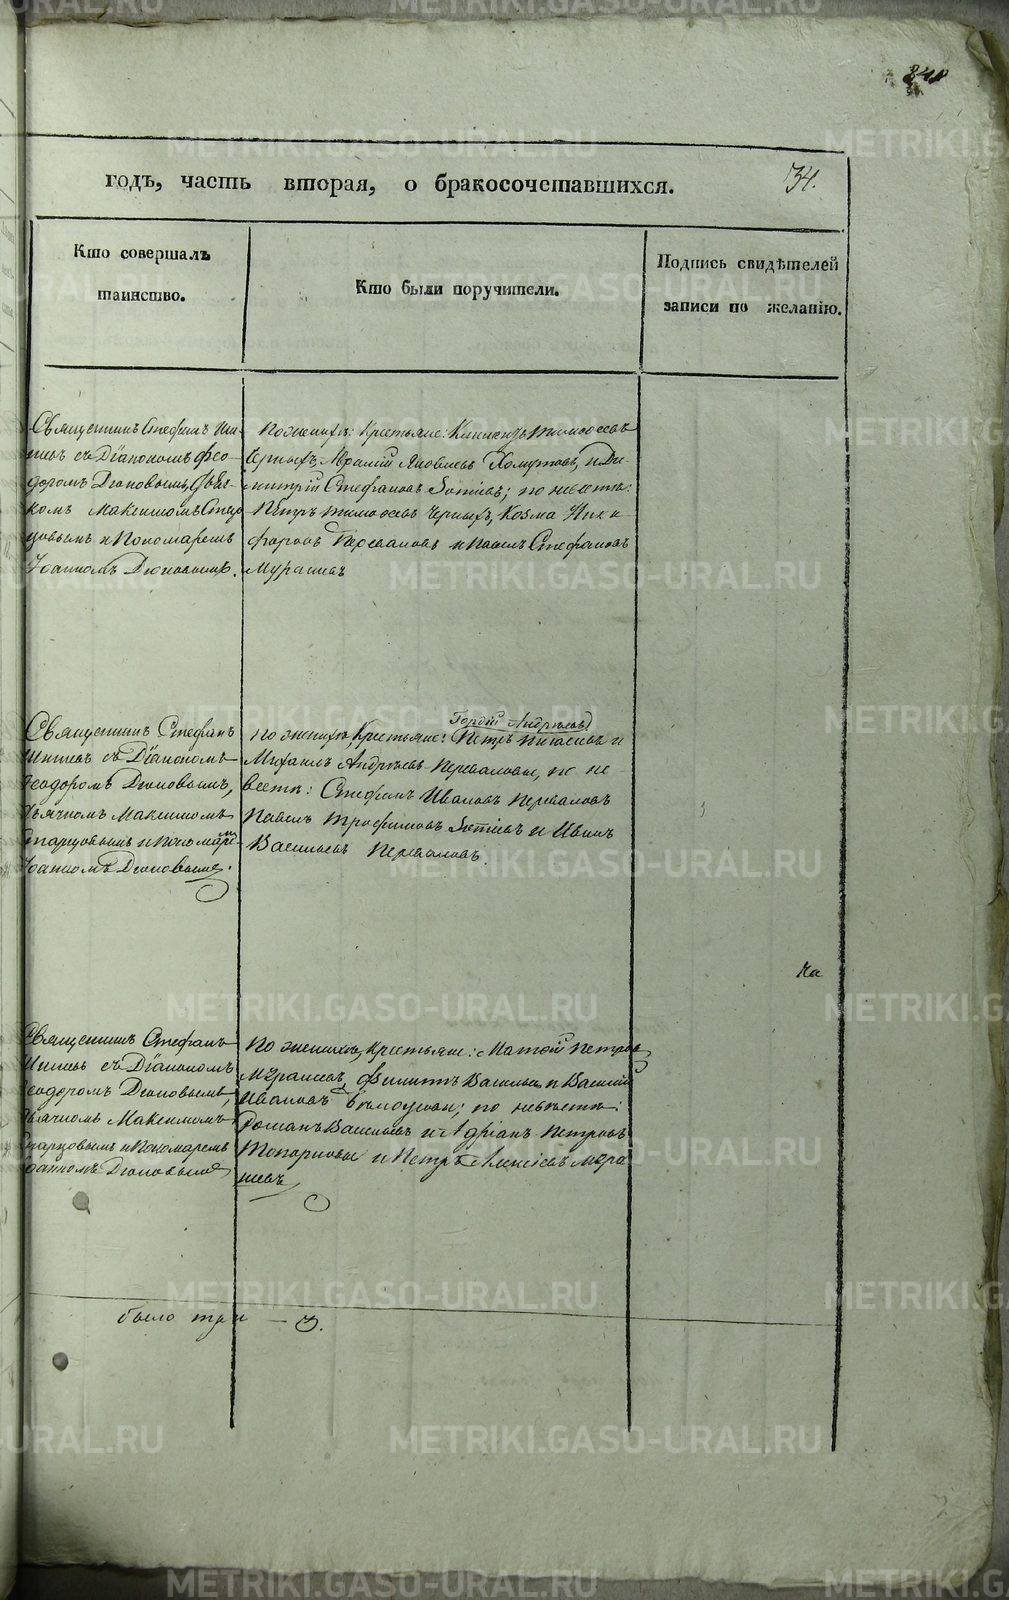 340
годъ, часть вторая, о бракосочетавшихся.
34.
Кто совершалъ
таинство.
Кто были поручители.
Подпись свидѣтелей
записи по желанію.
Священникъ Стефанъ
съ Діакономъ Фео-
доромъ Діоновымъ,
комъ Максимомъ
и Пономаремъ
Іоанномъ Діоновымъ.
По женихѣ: Крестьяне: Тимофеевъ
Черныхъ, Яковлевъ Хомутовъ, и Ди-
митрій Стефановъ Зотіевъ; по невѣстѣ:
Петръ Тимофеевъ Черныхъ, Козма Ники
форовъ Переваловъ и Павелъ Стефановъ
Мурашевъ
Священникъ Стефанъ
съ Діакономъ
Феодоромъ Діоновымъ,
Дьячкомъ Максимомъ
Старцовымъ и Пономаремъ
Іоанномъ Діоновымъ.
Гордій Андреевъ
по женихѣ, Крестьяне: Петръ и
Михаилъ Андреевъ Переваловы, по не-
вестѣ: Стефанъ Ивановъ Переваловъ
Павелъ Трофимовъ Зотіевъ и Иванъ
Васильевъ Переваловъ.
Ка
Священникъ Стефанъ
съ Діакономъ
Феодоромъ Діоновымъ,
Дьячкомъ Максимомъ
Старцовымъ и Пономаремъ
Іоанномъ Діоновымъ
По женихѣ, Крестьяне: Матфей Петровъ
Мурашевъ, Филиппъ Васильевъ и Василій
Ивановъ; по невѣстѣ:
Романъ Васильевъ и Адріанъ Петровъ
Топорковы и Петръ Алексіевъ Мура
шевъ
было три — 3.
METRIKI.GASO-URAL.RU